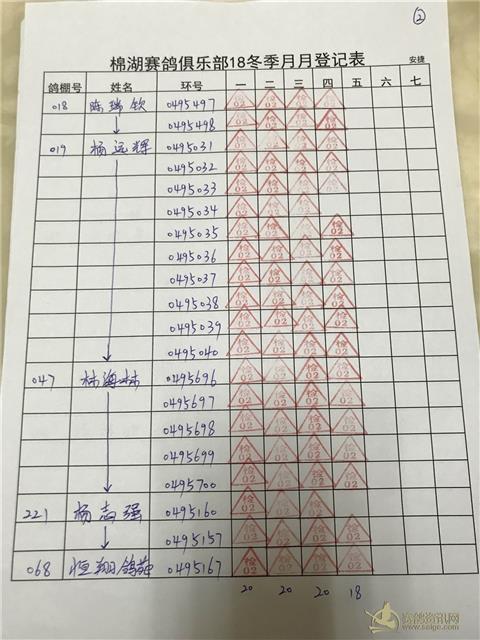 ②
棉湖赛鸽俱乐部18冬季月月登记表 安捷
鸽棚号 姓名 环号 一 二 三 四 五 六 七
018 陈瑞钦 0495497 检02 检02 检02 检02
0495498 检02 检02 检02 检02
019 杨远辉 0495031 检02 检02 检02 检02
0495032 检02 检02 检02 检02
0495033 检02 检02 检02 检02
0495034 检02 检02 检02
0495035 检02 检02 检02 检02
0495036 检02 检02 检02 检02
0495037 检02 检02 检02 检02
0495038 检02 检02 检02 检02
0495039 检02 检02 检02 检02
0495040 检02 检02 检02 检02
047 林海林 0495696 检02 检02 检02 检02
0495697 检02 检02 检02 检02
0495698 检02 检02 检02 检02
0495699 检02 检02 检02 检02
0495700 检02 检02 检02 检02
221 杨志强 0495160 检02 检02 检02
0495157 检02 检02 检02 检02
068 恒翔鸽苑 0495167 检02 检02 检02 检02
20 20 20 18
赛鸽资讯网
www.saige.com